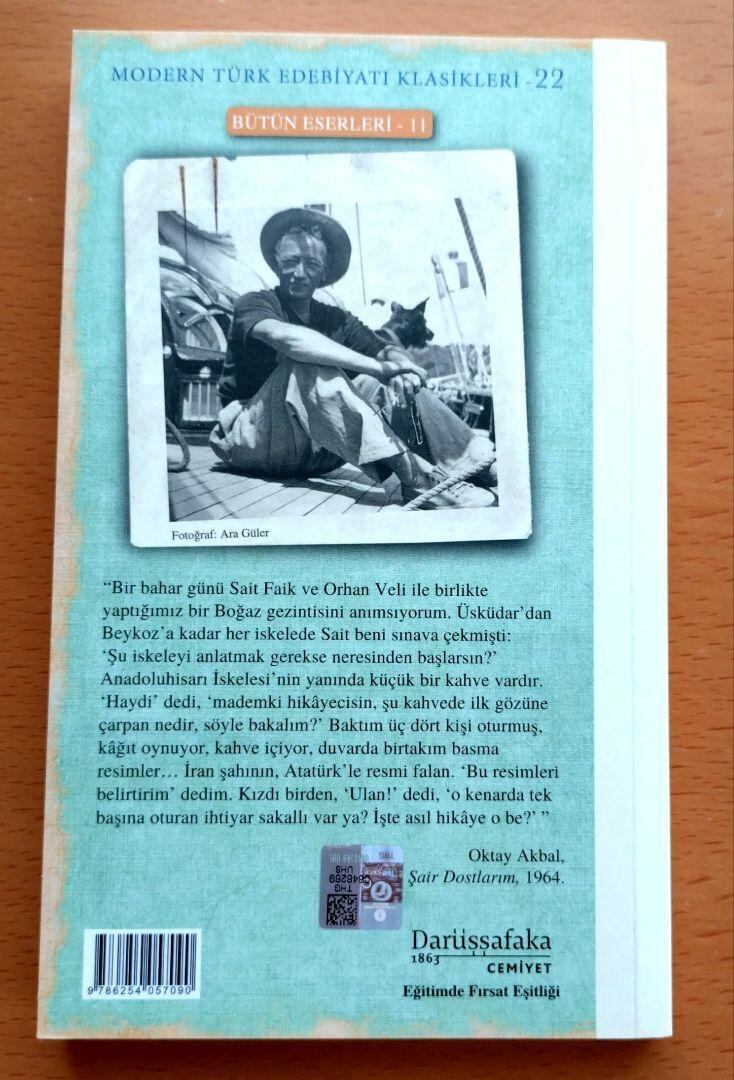 MODERN TÜRK EDEBİYATI KLASİKLERİ - 22
BÜTÜN ESERLERİ - 11
Fotoğraf: Ara Güler
“Bir bahar günü Sait Faik ve Orhan Veli ile birlikte
yaptığımız bir Boğaz gezintisini anımsıyorum. Üsküdar’dan
Beykoz’a kadar her iskelede Sait beni sınava çekmişti:
‘Şu iskeleyi anlatmak gerekse neresinden başlarsın?’
Anadoluhisarı İskelesi’nin yanında küçük bir kahve vardır.
‘Haydi’ dedi, ‘mademki hikâyecisin, şu kahvede ilk gözüne
çarpan nedir, söyle bakalım?’ Baktım üç dört kişi oturmuş,
kâğıt oynuyor, kahve içiyor, duvarda birtakım basma
resimler… İran şahının, Atatürk’le resmi falan. ‘Bu resimleri
belirtirim’ dedim. Kızdı birden, ‘Ulan!’ dedi, ‘o kenarda tek
başına oturan ihtiyar sakallı var ya? İşte asıl hikâye o be?’ ”
Oktay Akbal,
Şair Dostlarım, 1964.
THG
UHS
C648269
THG
Darüşşafaka
1863
CEMİYET
Eğitimde Fırsat Eşitliği
9 786254 057090